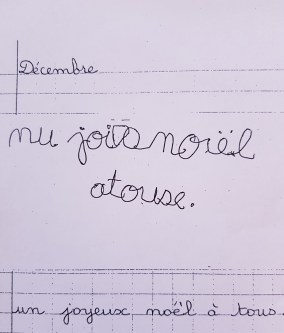 Décembre
nu joits noïël
atouse.
un joyeux noël à tous.